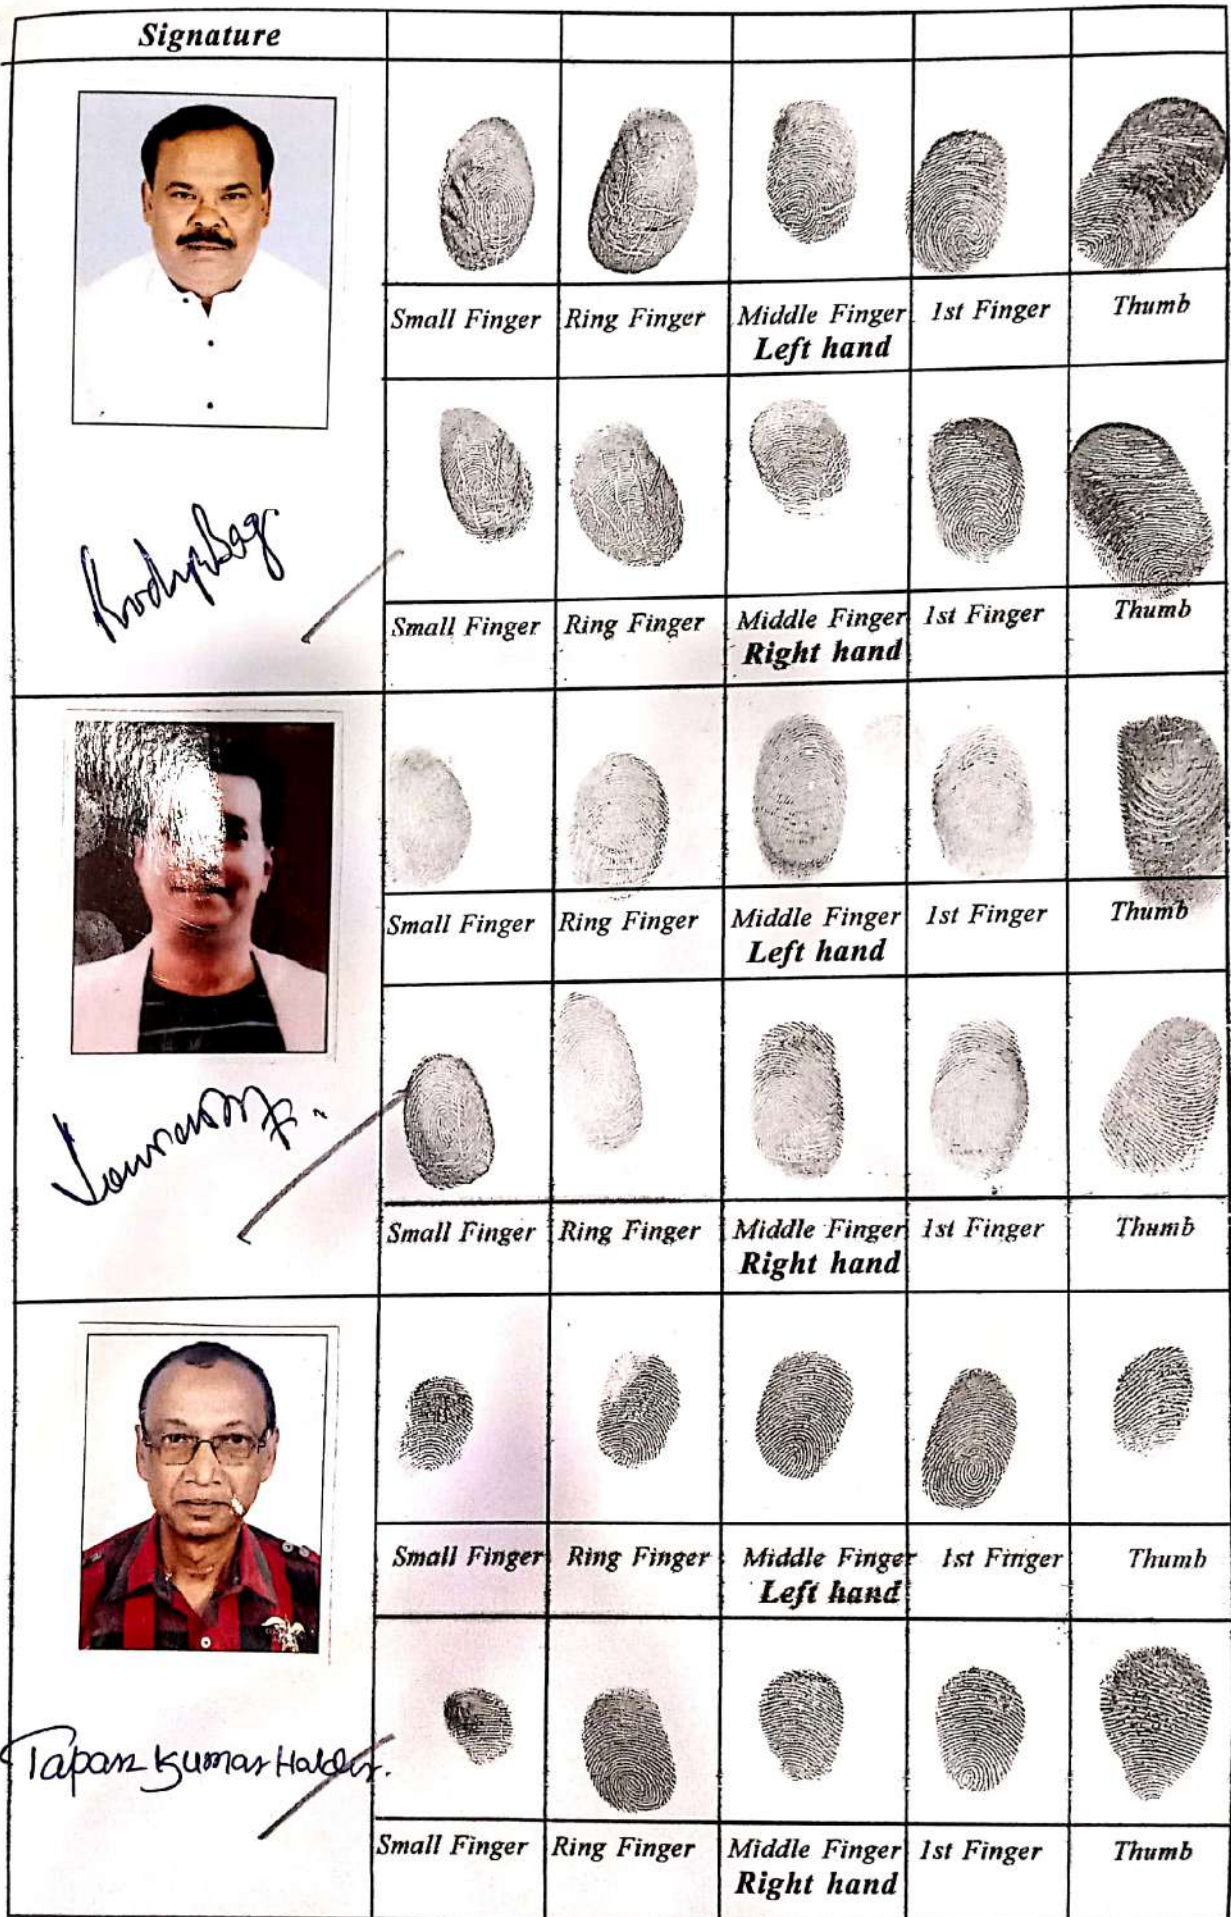 Signature
Small Finger Ring Finger Middle Finger 1st Finger Thumb
Left hand
Small Finger Ring Finger Middle Finger 1st Finger Thumb
Right hand
Small Finger Ring Finger Middle Finger 1st Finger Thumb
Left hand
Small Finger Ring Finger Middle Finger 1st Finger Thumb
Right hand
Small Finger Ring Finger Middle Finger 1st Finger Thumb
Left hand
Tapan Kumar Halder.
Small Finger Ring Finger Middle Finger 1st Finger Thumb
Right hand